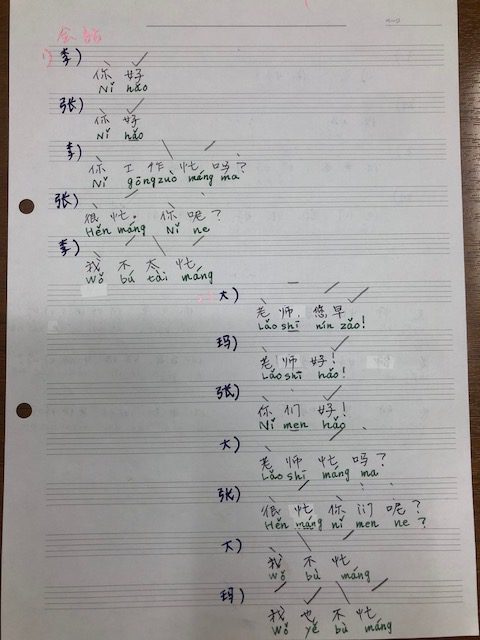 会話
1) 李) 你 好
Nǐ hǎo
张) 你 好
Nǐ hǎo
李) 你 工 作 忙 吗?
Nǐ gōngzuò máng ma
张) 很 忙。 你 呢?
Hěn máng Nǐ ne
李) 我 不 太 忙
Wǒ bú tài máng
大) 老 师, 您 早
Lǎo shī nín zǎo!
玛) 老 师 好!
Lǎo shī hǎo!
张) 你 们 好!
Nǐ men hǎo
大) 老 师 忙 吗?
Lǎo shī máng ma
张) 很 忙 你 们 呢?
Hěn máng nǐ men ne?
大) 我 不 忙
Wǒ bù máng
玛) 我 也 不 忙
Wǒ yě bù máng